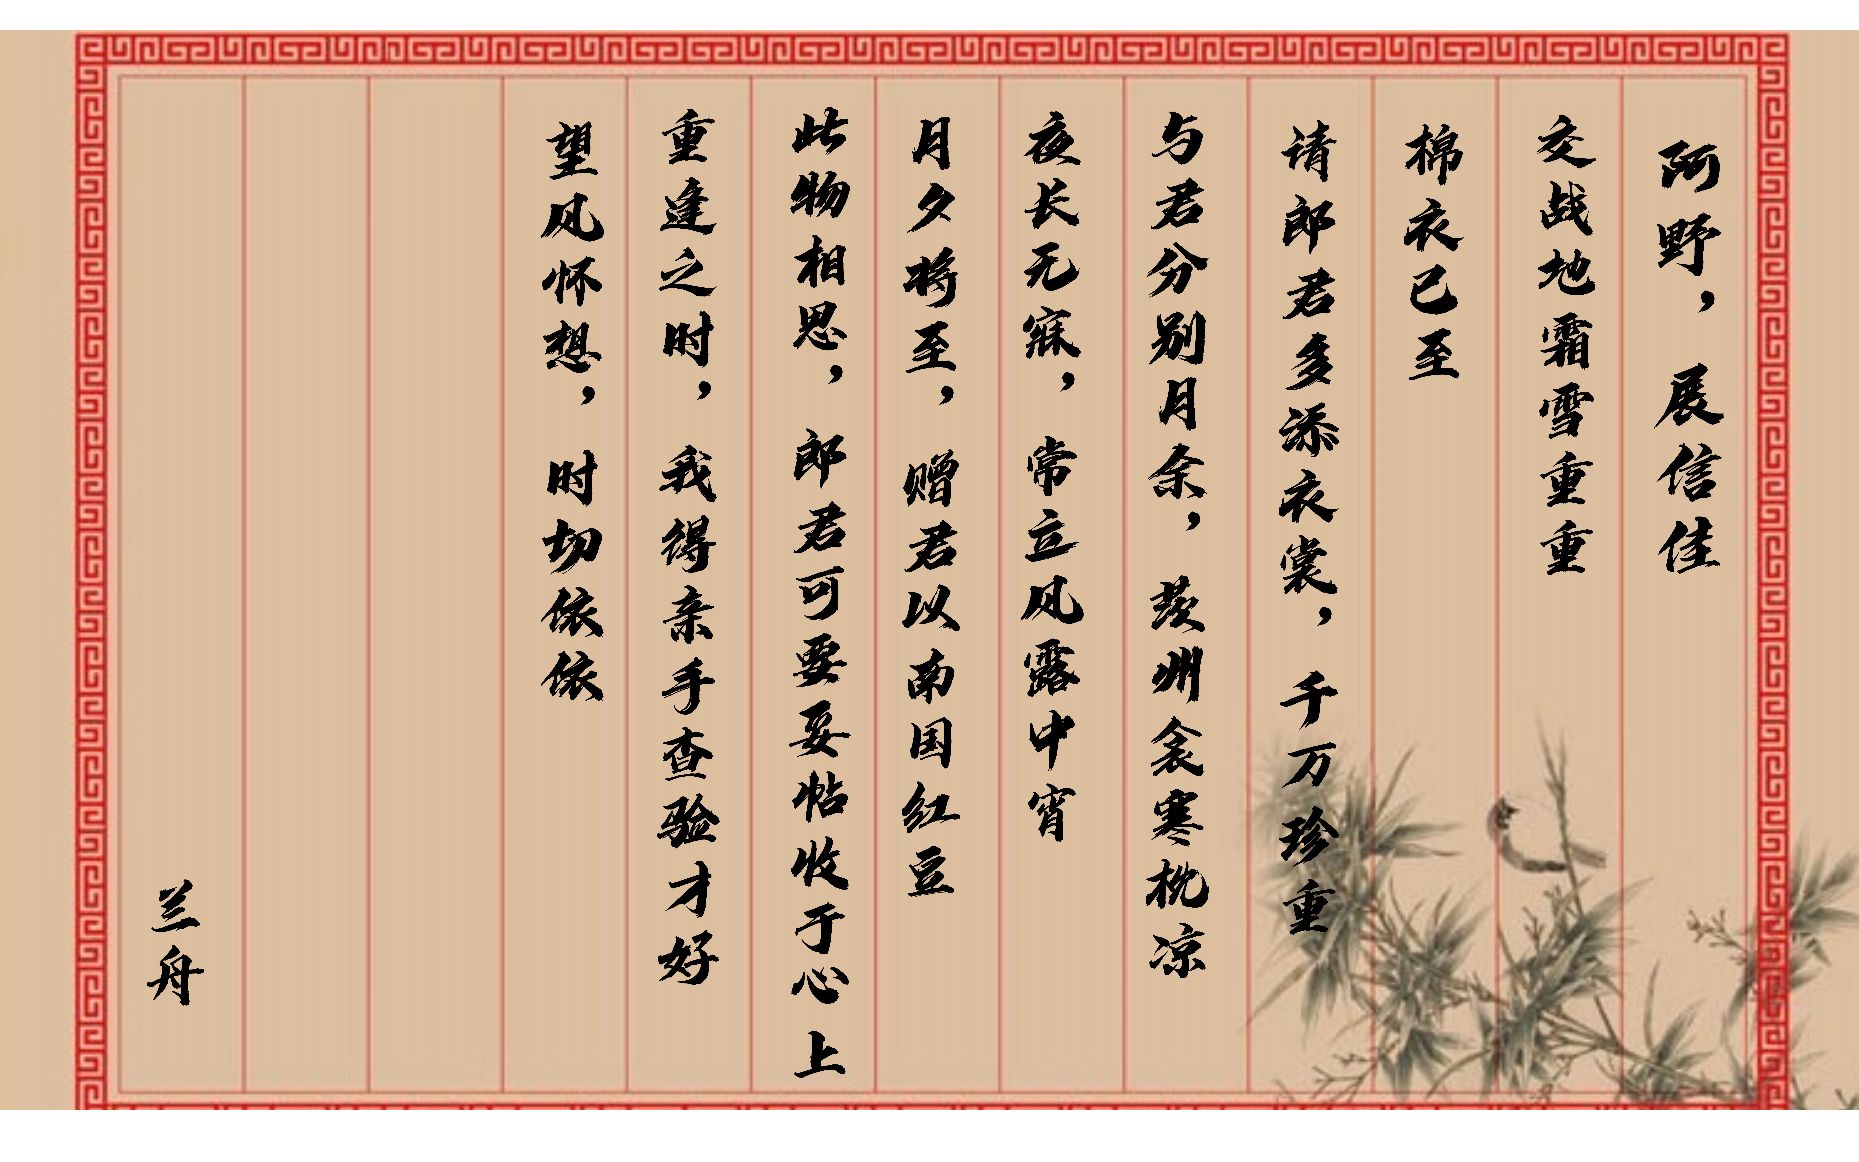 阿野，展信佳
交战地霜雪重重
棉衣已至
请郎君多添衣裳，千万珍重
与君分别月余，茨州衾寒枕凉
夜长无寐，常立风露中宵
月夕将至，赠君以南国红豆
此物相思，郎君可要妥帖收于心上
重逢之时，我得亲手查验才好
望风怀想，时切依依
兰舟